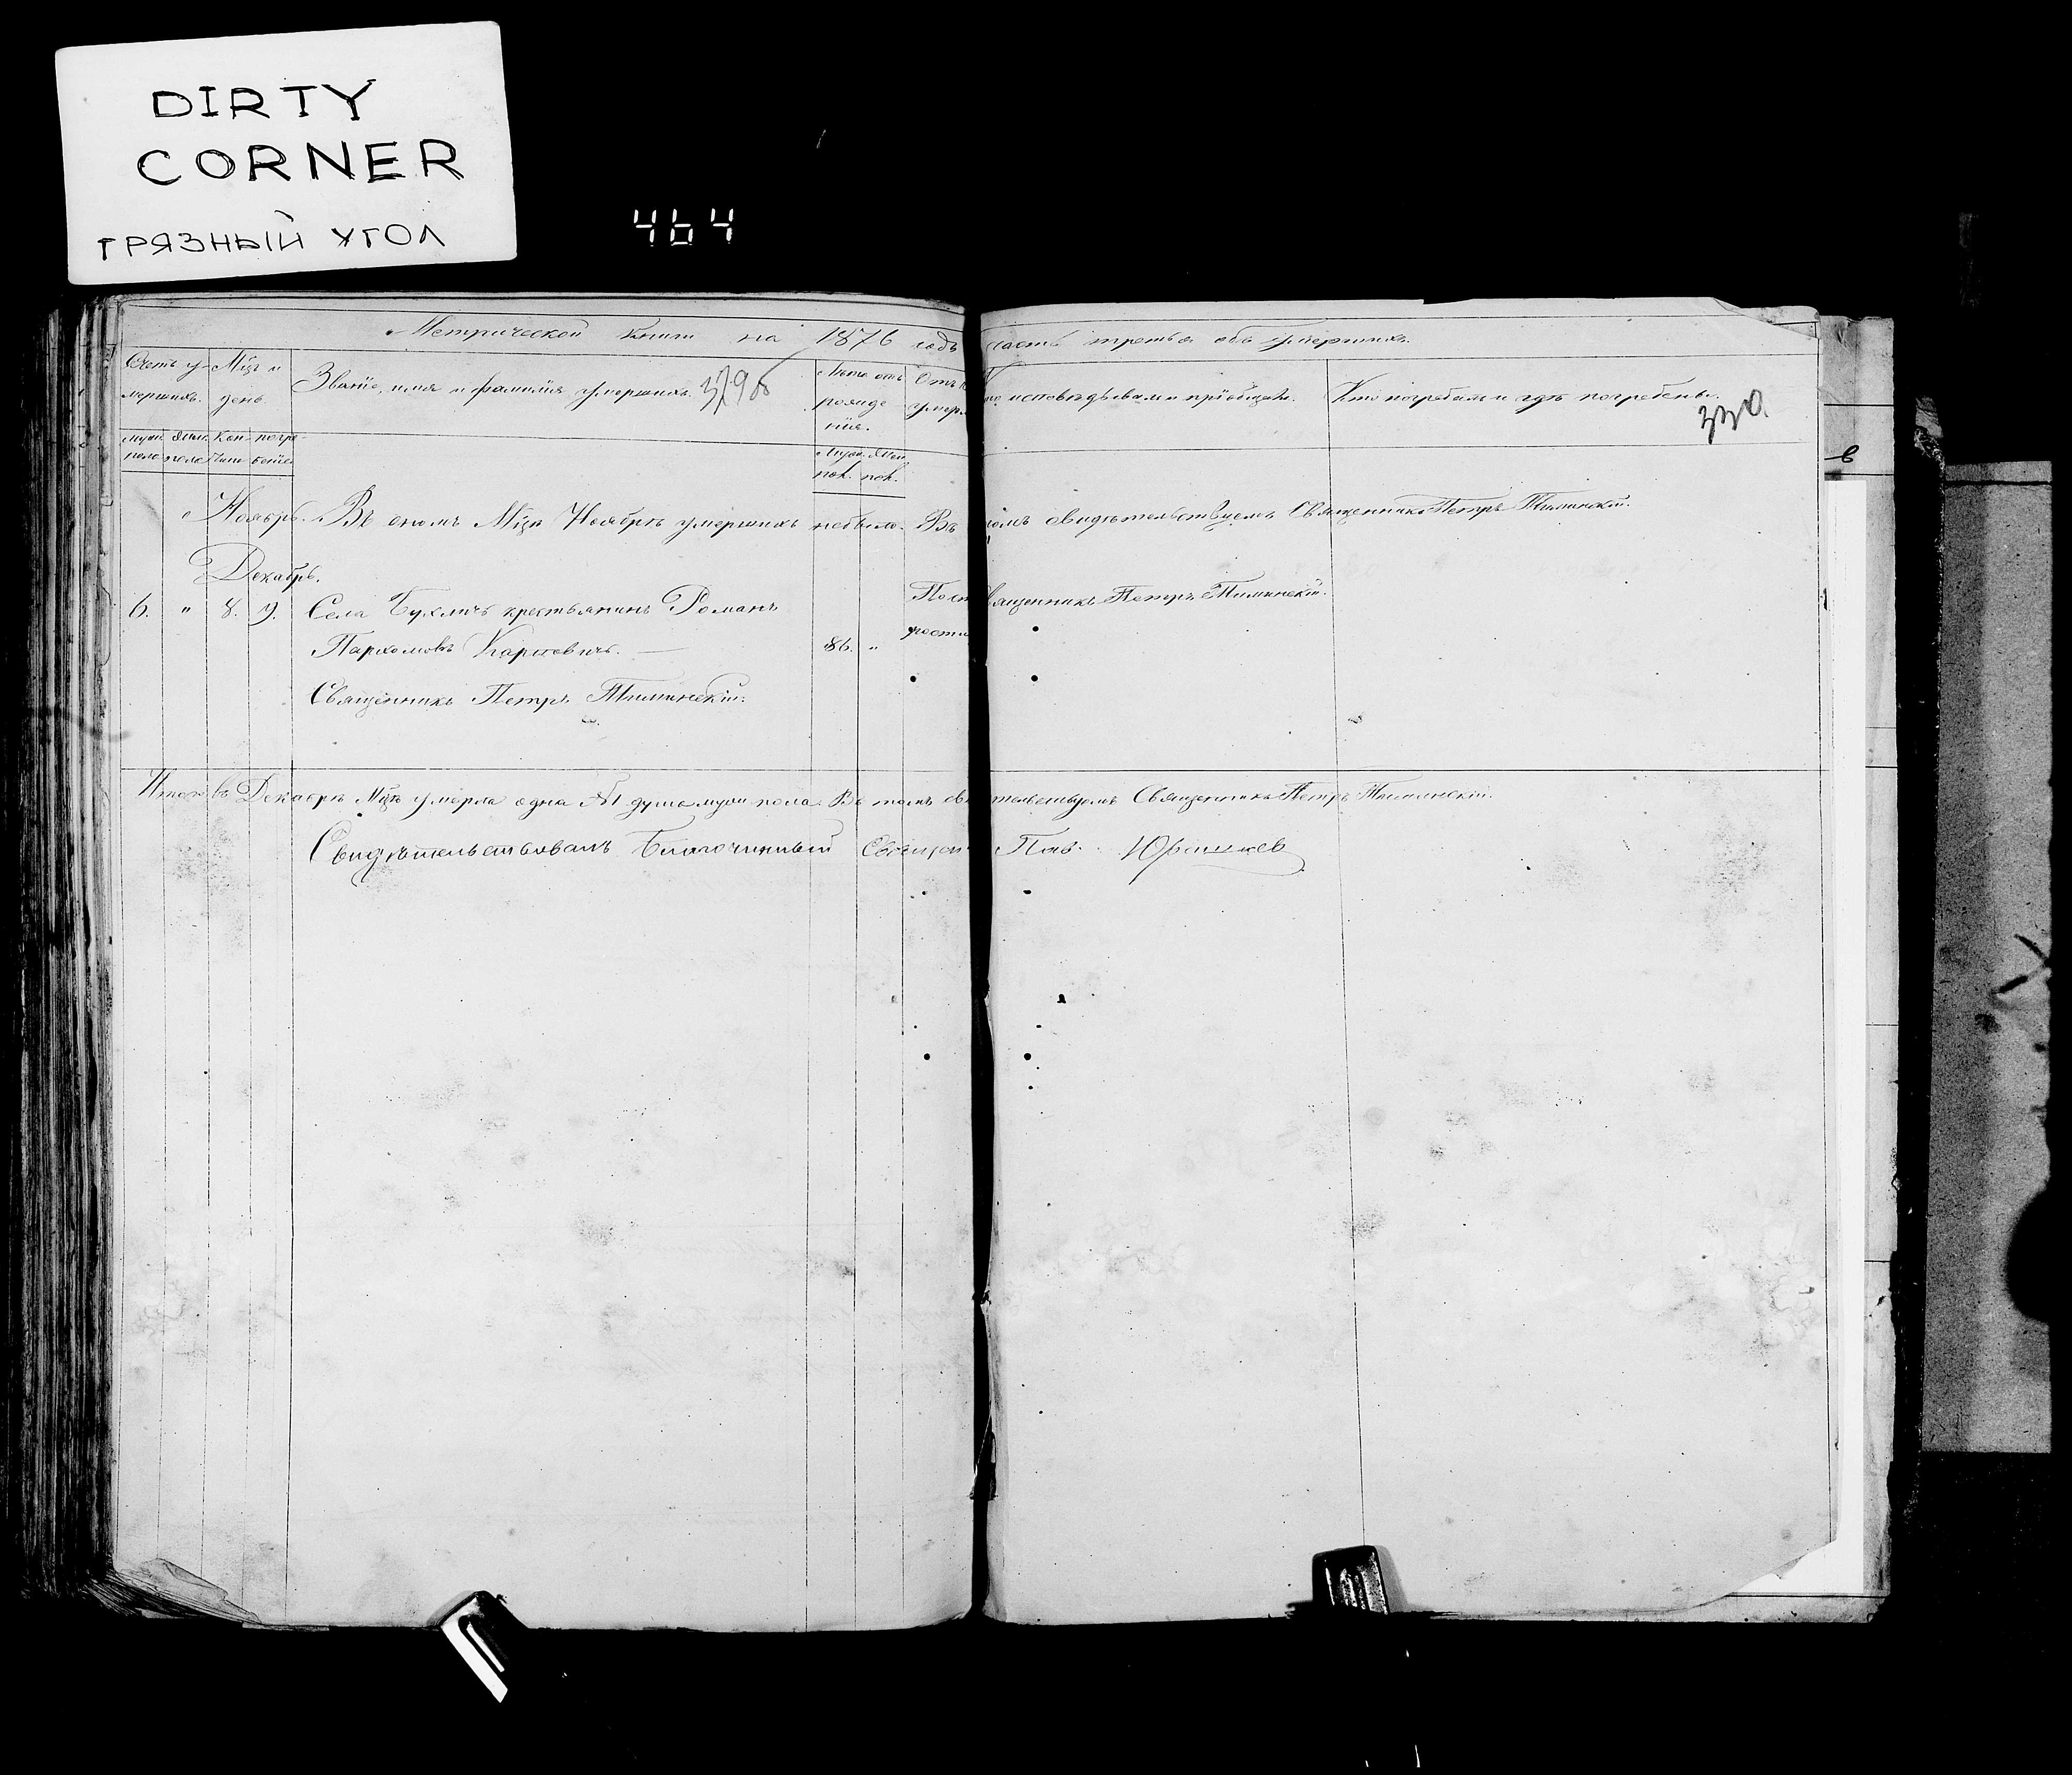 DIRTY
CORNER
ГРЯЗНЫЙ УГОЛ
464
Метрической книги на 1876 годъ часть третья объ умершихъ.
Счетъ умершихъ.
Мѣц и день
Званіе, имя и фамилія умершихъ.
Лѣта отъ рожденія.
Отъ
умер
исповѣдывалъ и пріобщалъ.
Кто погребалъ и гдѣ погребены.
330.
муж. пола
жен. пола
Кон-чины
погре-бенія
Муж. пол.
Жен. пол.
Ноябрь. Въ ономъ Мцѣ Ноябрѣ умершихъ небыло. Въ томъ свидѣтельствуемъ Священникъ Петръ
Декабрь.
6. " 8. 9. Села крестьянинъ Романъ
Священникъ Петръ
Пархомовъ Карповичъ. — 86. "
Священникъ Петръ
Итого въ Декабрѣ Мцѣ умерла одна №1 душа муж. пола. Въ томъ свидѣтельствуемъ Священникъ Петръ
Свидѣтельствовалъ Благочинный Священ Пав.
в